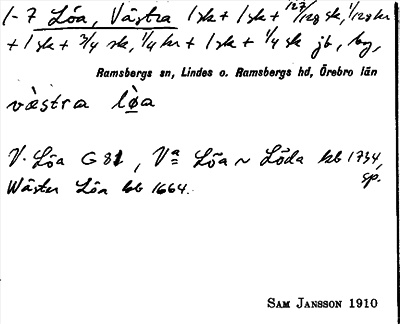 1-7 Löa, Västra 1 sk + 1 sk + 127/128 sk, 1/128 kr
+ 1 sk + 3/4 sk, 1/4 kr + 1 sk + 1/4 sk jb, by,
Ramsbergs sn, Lindes o. Ramsbergs hd, Örebro län
væ̀stra lò̤a
V. Löa G 81, Va Löa ~ Löda kb 1734,
sp.
Wäster Löa kb 1664.
SAM JANSSON 1910